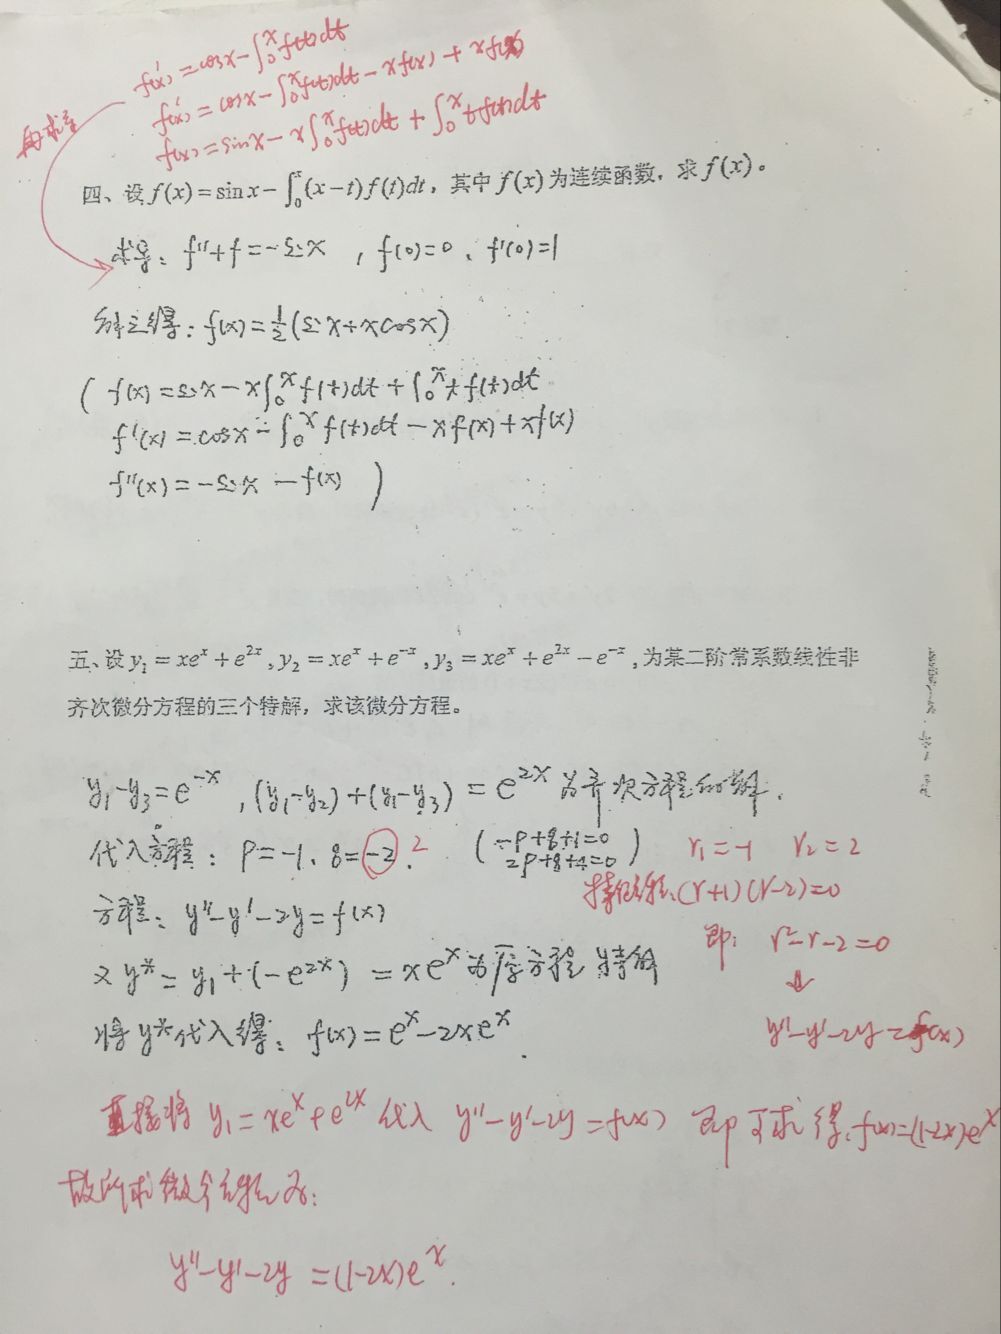 f'(x) = cosx - ∫₀ˣ f(t)dt
f'(x) = cosx - ∫₀ˣ f(t)dt - xf(x) + xf(x)
f(x) = sinx - x∫₀ˣ f(t)dt + ∫₀ˣ tf(t)dt
再求导
四、设 f(x) = sin x - ∫₀ˣ (x-t) f(t)dt，其中 f(x) 为连续函数，求 f(x)。
求导：f''+f=-sinx，f(0)=0、f'(0)=1
解之得：f(x)=½(sinx+xcosx)
( f(x)=sinx-x∫₀ˣ f(t)dt+∫₀ˣ t f(t)dt
f'(x)=cosx-∫₀ˣ f(t)dt-xf(x)+xf(x)
f''(x)=-sinx-f(x) )
五、设 y₁ = xeˣ + e²ˣ, y₂ = xeˣ + e⁻ˣ, y₃ = xeˣ + e²ˣ - e⁻ˣ, 为某二阶常系数线性非
齐次微分方程的三个特解，求该微分方程。
y₁-y₃=e⁻ˣ, (y₁-y₂)+(y₁-y₃)=e²ˣ为齐次方程的解.
代入方程：p=-1、q=-2. 2 (-p+q+1=0
2p+q+4=0) r₁=-1 r₂=2
特征方程:(r+1)(r-2)=0
方程：y''-y'-2y=f(x)
即: r²-r-2=0
又y*=y₁+(-e²ˣ)=xeˣ为原方程特解
⇓
将y*代入得：f(x)=eˣ-2xeˣ.
y''-y'-2y=f(x)
直接将 y₁=xeˣ+e²ˣ 代入 y''-y'-2y=f(x) 即可求得:f(x)=(1-2x)eˣ
故所求微分方程为：
y''-y'-2y=(1-2x)eˣ.